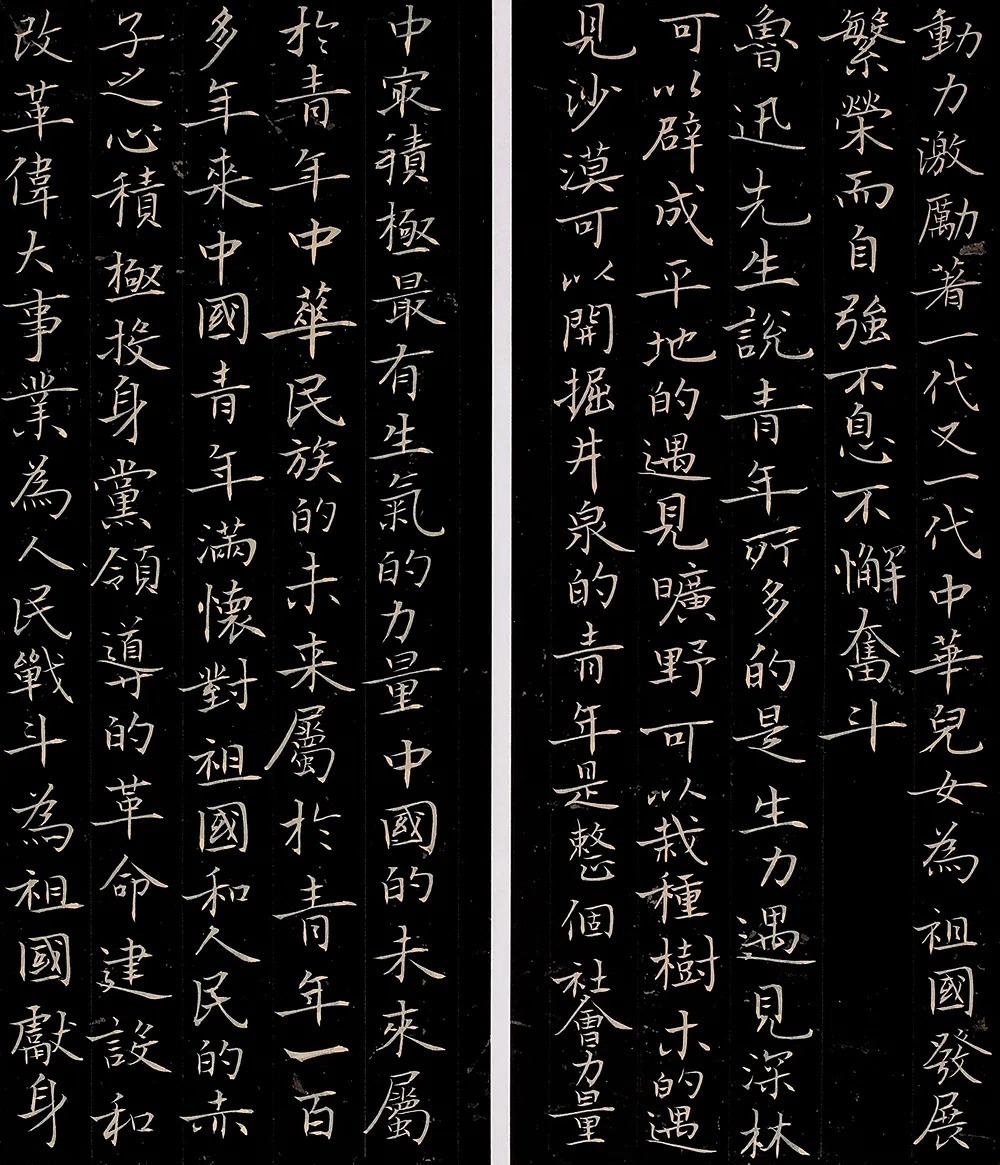 動力激勵著一代又一代中華兒女為祖國發展
繁榮而自強不息不懈奮斗
魯迅先生說青年所多的是生力遇見深林
可以辟成平地的遇見曠野可以栽種樹木的遇
見沙漠可以開掘井泉的青年是整個社會力量
中最積極最有生氣的力量中國的未來屬
於青年中華民族的未来屬於青年一百
多年來中國青年滿懷對祖國和人民的赤
子之心積極投身黨領導的革命建設和
改革偉大事業為人民戰斗為祖國獻身